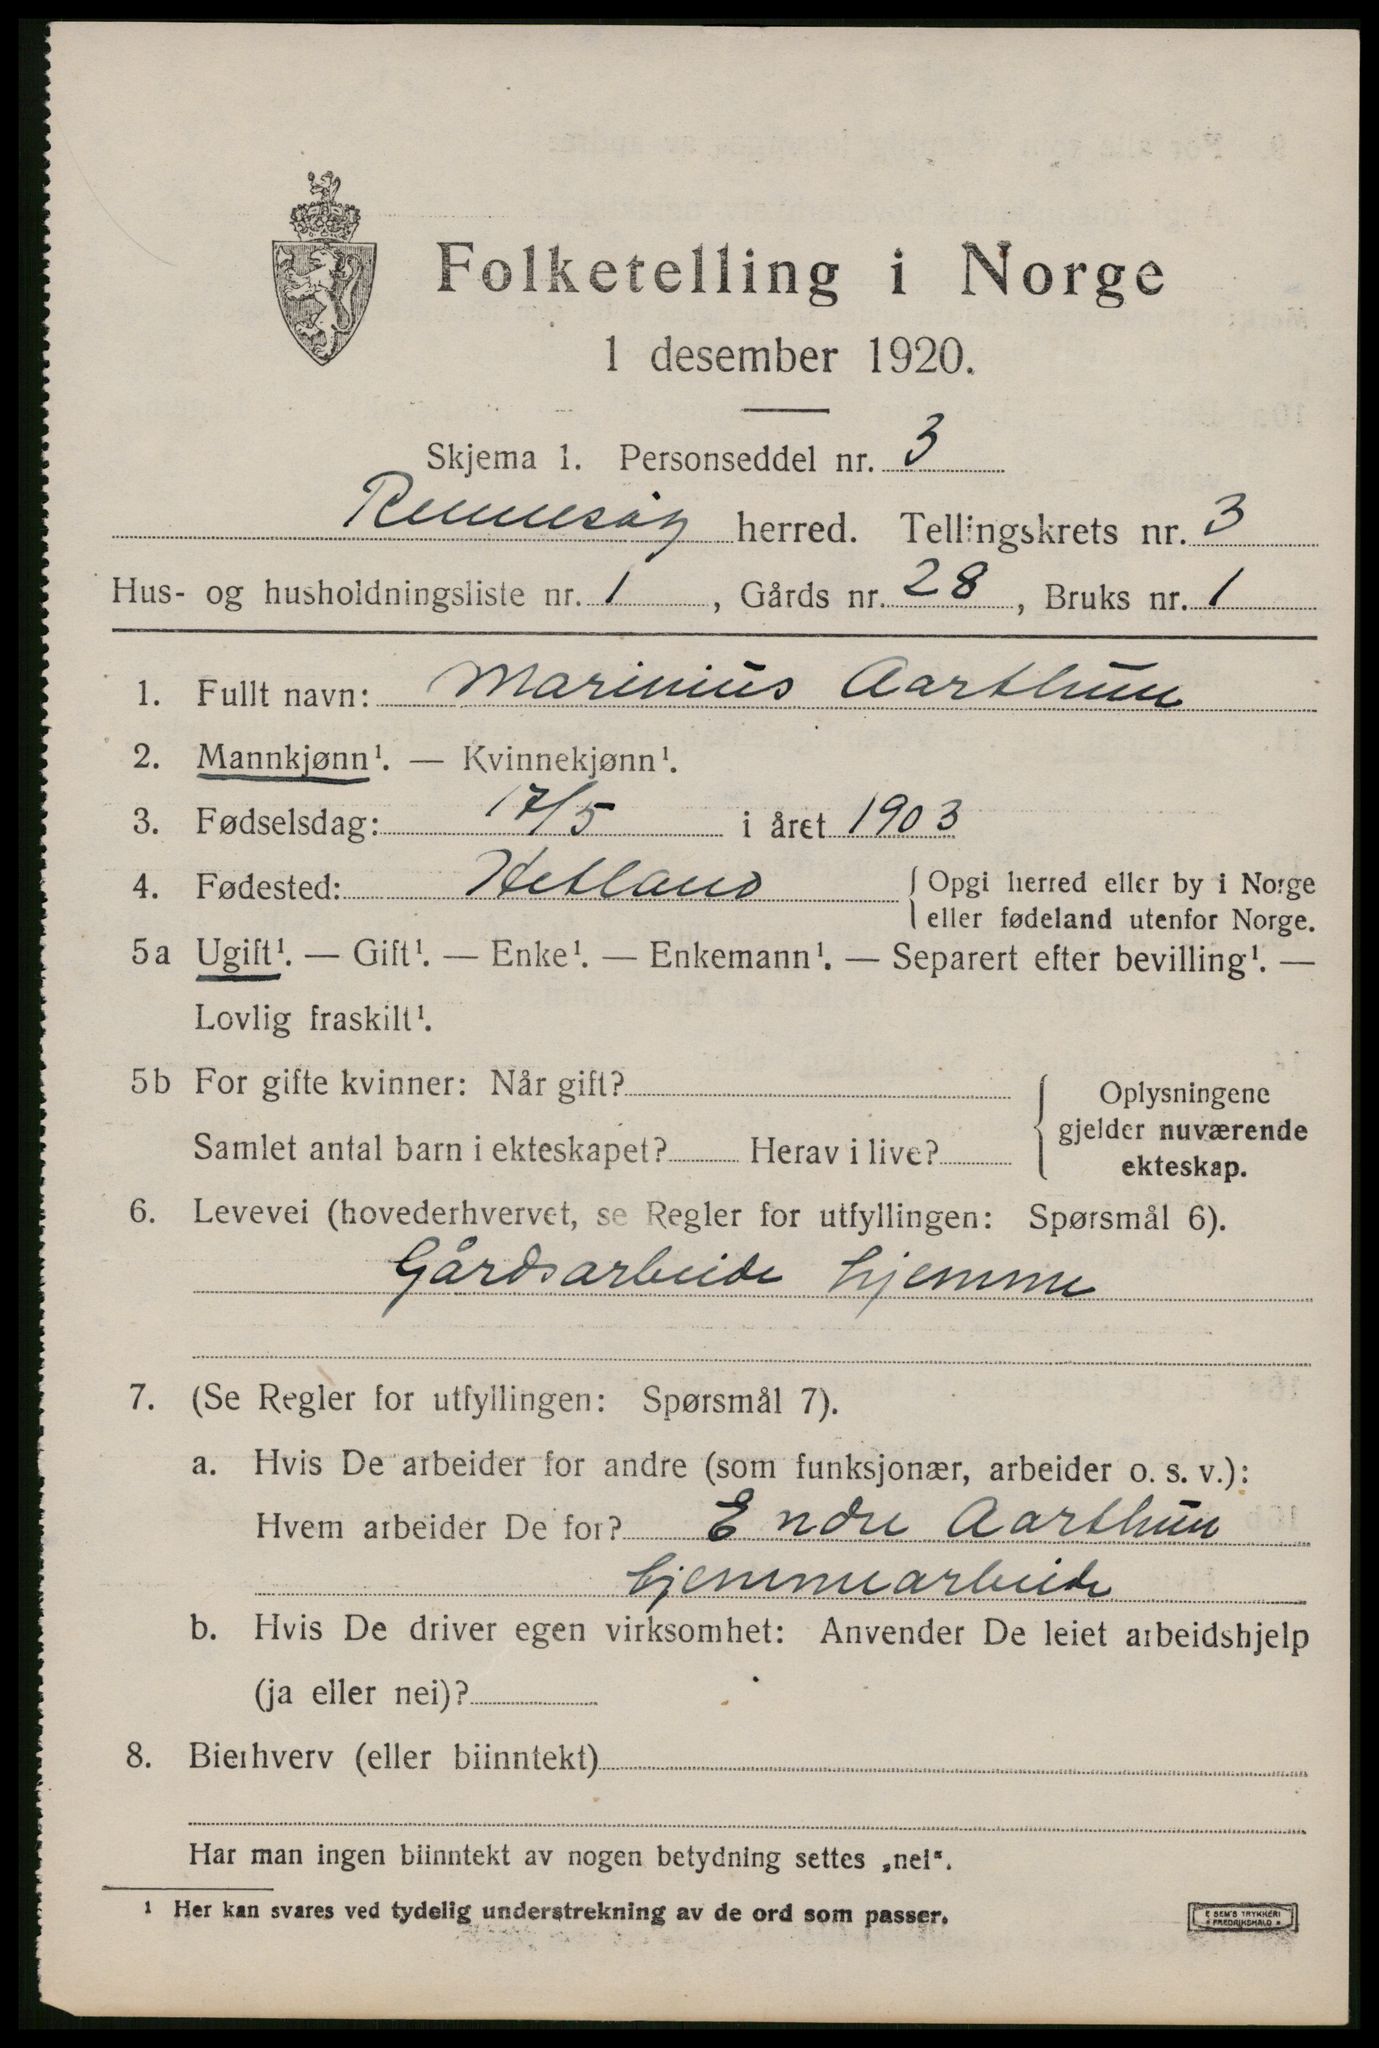 Folketelling i Norge
1 desember 1920.
Skjema 1. Personseddel nr. 3
Rennesøy herred. Tellingskrets nr. 3
Hus- og husholdningsliste nr. 1, Gårds nr. 28, Bruks nr. 1
1. Fullt navn: Marinius Aarthun
2. Mannkjønn¹. — Kvinnekjønn¹.
3. Fødselsdag: 17/5 i året 1903
4. Fødested: Hetland { Opgi herred eller by i Norge
eller fødeland utenfor Norge.
5a Ugift¹. — Gift¹. — Enke¹. — Enkemann¹. — Separert efter bevilling¹. —
Lovlig fraskilt¹.
5b For gifte kvinner: Når gift? { Oplysningene
gjelder nuværende
Samlet antal barn i ekteskapet? Herav i live?
ekteskap.
6. Levevei (hovederhvervet, se Regler for utfyllingen: Spørsmål 6).
Gårdsarbeide hjemme
7. (Se Regler for utfyllingen: Spørsmål 7).
a. Hvis De arbeider for andre (som funksjonær, arbeider o. s. v.):
Hvem arbeider De for? Endre Aarthun
hjemmearbeide
b. Hvis De driver egen virksomhet: Anvender De leiet arbeidshjelp
(ja eller nei)?
8. Bierhverv (eller biinntekt)
Har man ingen biinntekt av nogen betydning settes „nei“.
¹ Her kan svares ved tydelig understrekning av de ord som passer.
E SEM'S TRYKKERI
FREDRIKSHALD